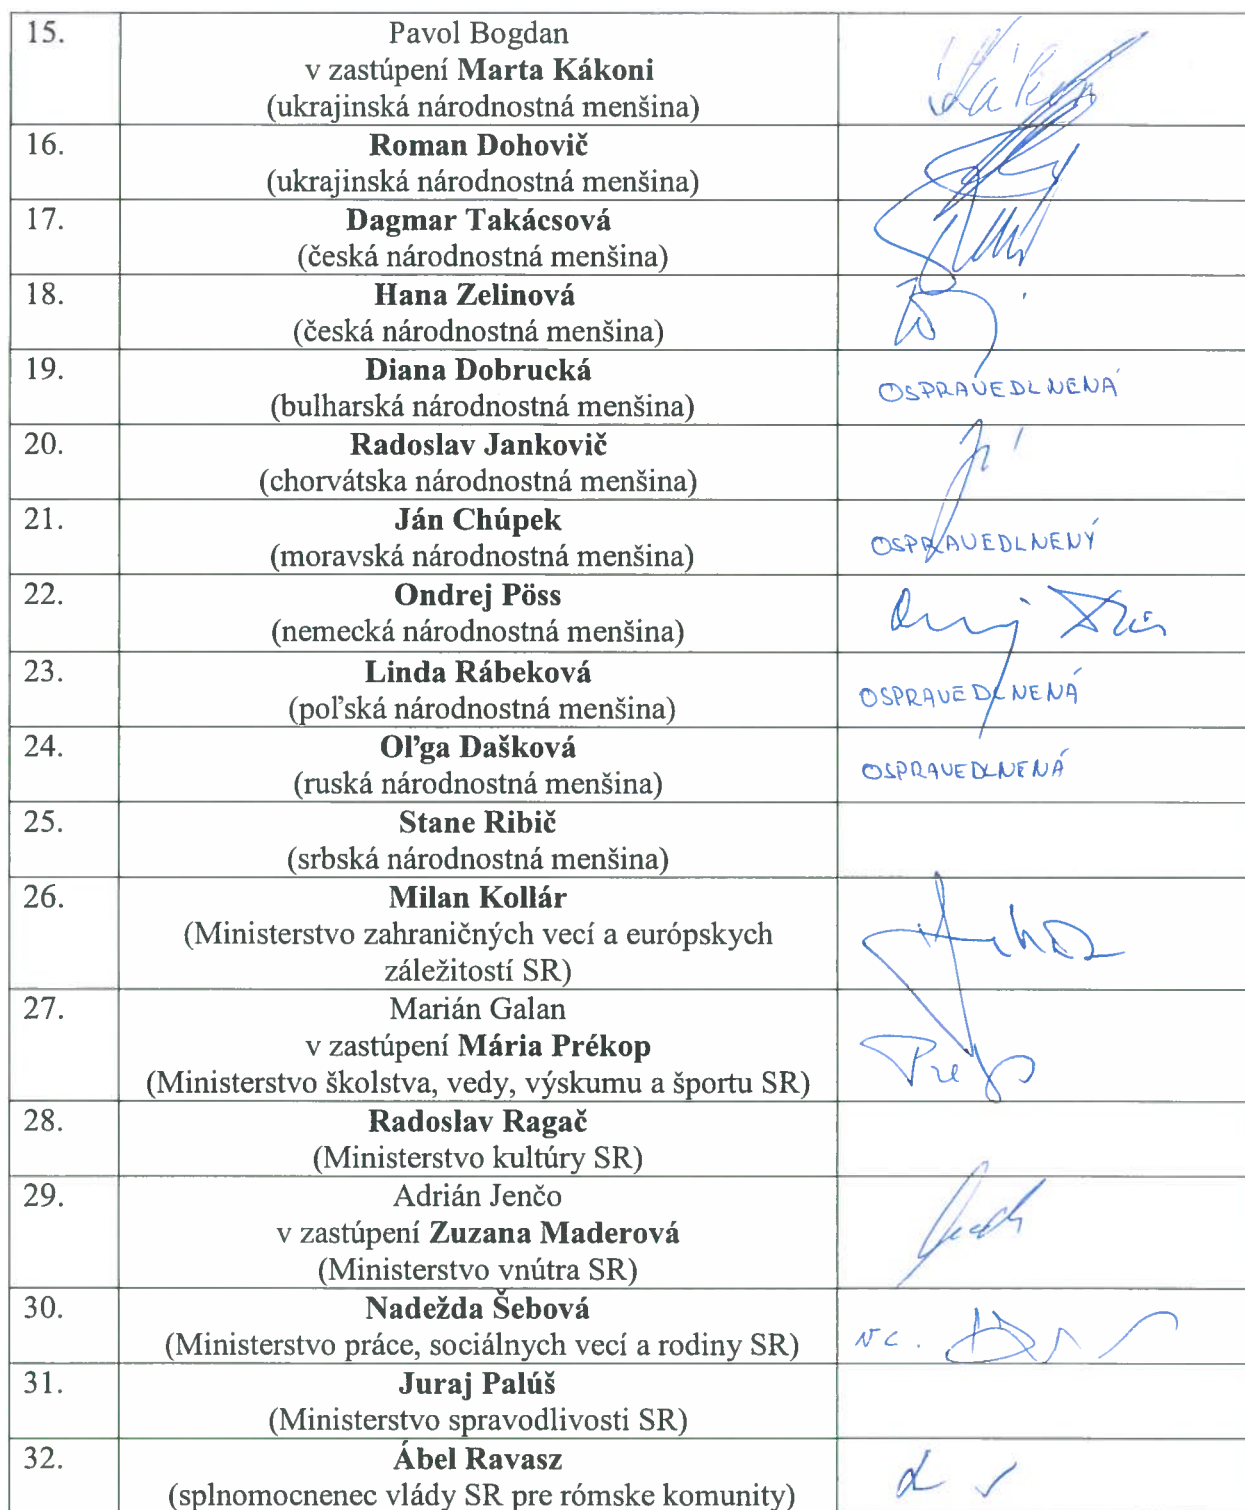 15.
Pavol Bogdan
v zastúpení Marta Kákoni
(ukrajinská národnostná menšina)
16.
Roman Dohovič
(ukrajinská národnostná menšina)
17.
Dagmar Takácsová
(česká národnostná menšina)
18.
Hana Zelinová
(česká národnostná menšina)
19.
Diana Dobrucká
(bulharská národnostná menšina)
OSPRAVEDLNENÁ
20.
Radoslav Jankovič
(chorvátska národnostná menšina)
21.
Ján Chúpek
(moravská národnostná menšina)
OSPRAVEDLNENÝ
22.
Ondrej Pöss
(nemecká národnostná menšina)
23.
Linda Rábeková
(poľská národnostná menšina)
OSPRAVEDLNENÁ
24.
Oľga Dašková
(ruská národnostná menšina)
OSPRAVEDLNENÁ
25.
Stane Ribič
(srbská národnostná menšina)
26.
Milan Kollár
(Ministerstvo zahraničných vecí a európskych
záležitostí SR)
27.
Marián Galan
v zastúpení Mária Prékop
(Ministerstvo školstva, vedy, výskumu a športu SR)
28.
Radoslav Ragač
(Ministerstvo kultúry SR)
29.
Adrián Jenčo
v zastúpení Zuzana Maderová
(Ministerstvo vnútra SR)
30.
Nadežda Šebová
(Ministerstvo práce, sociálnych vecí a rodiny SR)
31.
Juraj Palúš
(Ministerstvo spravodlivosti SR)
32.
Ábel Ravasz
(splnomocnenec vlády SR pre rómske komunity)